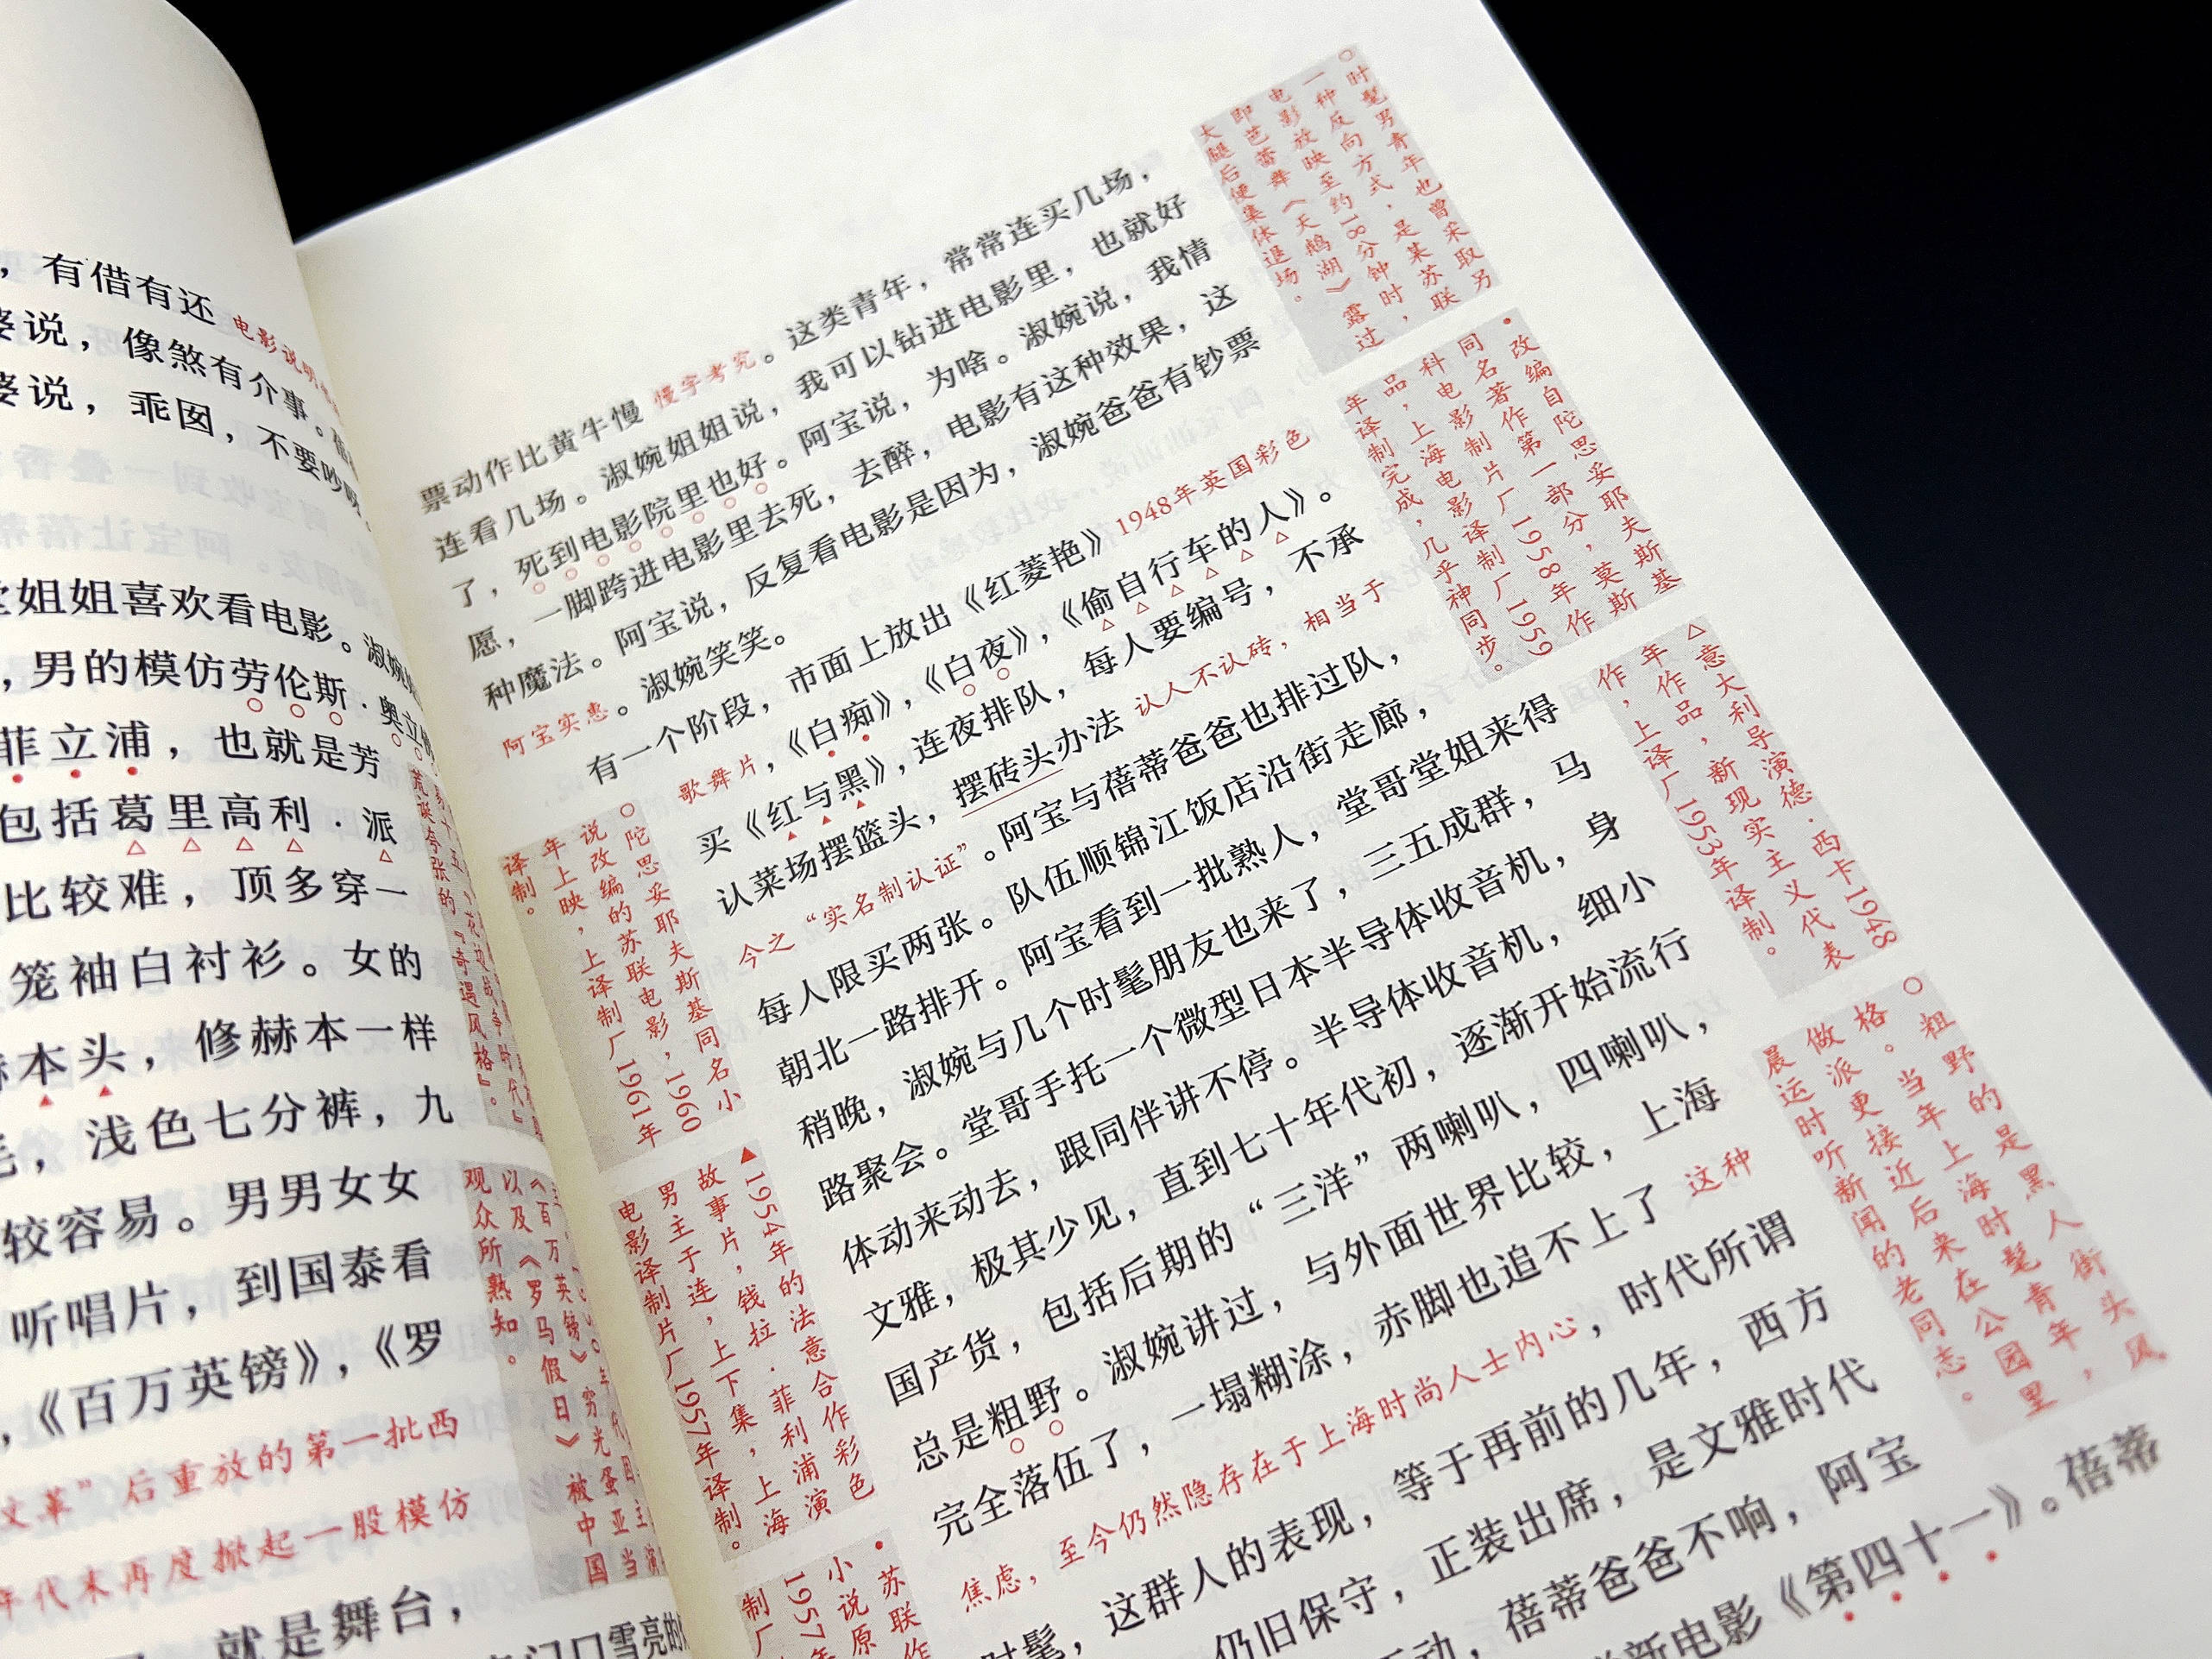 ，有借有还 电影说明
婆说，像煞有介事。
婆说，乖囡，不要吵
堂姐姐喜欢看电影。淑婉
，男的模仿劳伦斯·奥立
菲立浦，也就是芳
包括葛里高利·派
比较难，顶多穿一
笼袖白衬衫。女的
赫本头，修赫本一样
，浅色七分裤，九
较容易。男男女女
听唱片，到国泰看
，《百万英镑》，《罗
文革”后重放的第一批西
年代末再度掀起一股模仿
就是舞台，
门口雪亮的
荒诞夸张的『奇遇风格』。
《百万英镑》穷光蛋亚当
以及《罗马假日》被中国
观众所熟知。
票动作比黄牛慢 慢字考究。这类青年，常常连买几场，
连看几场。淑婉姐姐说，我可以钻进电影里，也就好
了，死到电影院里也好。阿宝说，为啥。淑婉说，我情
愿，一脚跨进电影里去死，去醉，电影有这种效果，这
种魔法。阿宝说，反复看电影是因为，淑婉爸爸有钞票
阿宝实惠。淑婉笑笑。
有一个阶段，市面上放出《红菱艳》1948年英国彩色
歌舞片，《白痴》，《白夜》，《偷自行车的人》。
买《红与黑》，连夜排队，每人要编号，不承
认菜场摆篮头，摆砖头办法 认人不认砖，相当于
今之“实名制认证”。阿宝与蓓蒂爸爸也排过队，
每人限买两张。队伍顺锦江饭店沿街走廊，
朝北一路排开。阿宝看到一批熟人，堂哥堂姐来得
稍晚，淑婉与几个时髦朋友也来了，三五成群，马
路聚会。堂哥手托一个微型日本半导体收音机，身
体动来动去，跟同伴讲不停。半导体收音机，细小
文雅，极其少见，直到七十年代初，逐渐开始流行
国产货，包括后期的“三洋”两喇叭，四喇叭，
总是粗野。淑婉讲过，与外面世界比较，上海
完全落伍了，一塌糊涂，赤脚也追不上了 这种
焦虑，至今仍然隐存在于上海时尚人士内心，时代所谓
时髦，这群人的表现，等于再前的几年，西方
仍旧保守，正装出席，是文雅时代
动，蓓蒂爸爸不响，阿宝
新电影《第四十一》。蓓蒂
○时髦男青年也曾采取另
一种反向方式，是某苏联
电影放映至约18分钟时，
即芭蕾舞《天鹅湖》露过
大腿后便集体退场。
•改编自陀思妥耶夫斯基
同名著作第一部分，莫斯
科电影制片厂1958年作
品，上海电影译制厂1959
年译制完成，几乎神同步。
△意大利导演德·西卡1948
年作品，新现实主义代表
作，上译厂1953年译制。
○粗野的是黑人街头风
格。当年上海时髦青年，
做派更接近后来在公园里
晨运时听新闻的老同志。
○陀思妥耶夫斯基同名小
说改编的苏联电影，1960
年上映，上译制厂1961年
译制。
▲1954年的法意合作彩色
故事片，钱拉·菲利浦演
男主于连，上下集，上海
电影译制片厂1957年译制。
•苏联作
小说原
1957年
制厂